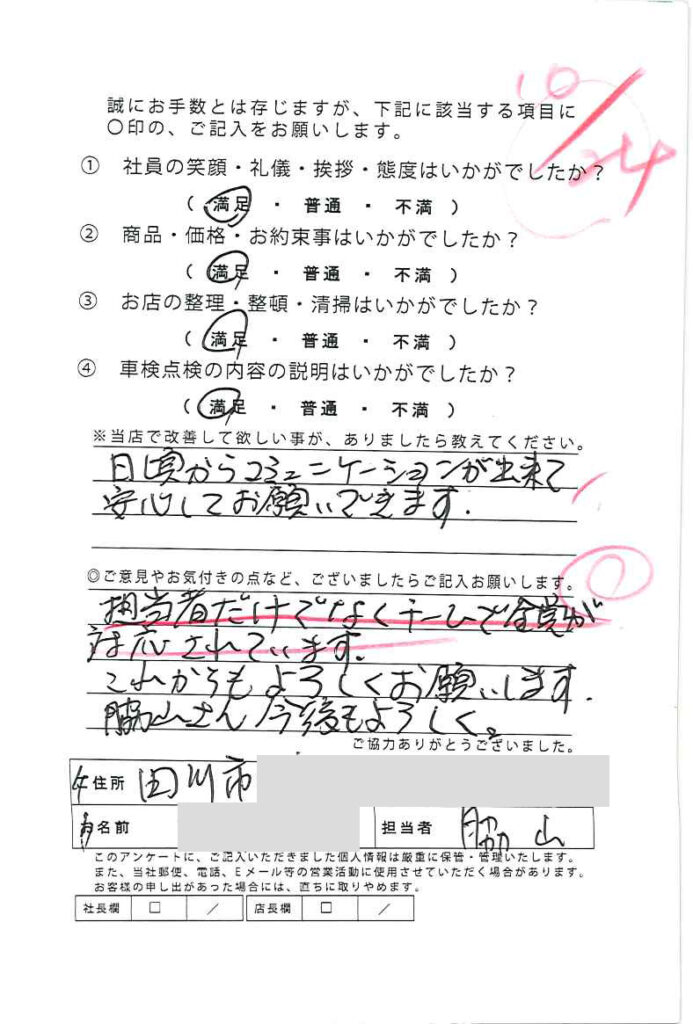 10/24
誠にお手数とは存じますが、下記に該当する項目に
〇印の、ご記入をお願いします。
① 社員の笑顔・礼儀・挨拶・態度はいかがでしたか？
( 満足 ・ 普通 ・ 不満 )
② 商品・価格・お約束事はいかがでしたか？
( 満足 ・ 普通 ・ 不満 )
③ お店の整理・整頓・清掃はいかがでしたか？
( 満足 ・ 普通 ・ 不満 )
④ 車検点検の内容の説明はいかがでしたか？
( 満足 ・ 普通 ・ 不満 )
※当店で改善して欲しい事が、ありましたら教えてください。
日頃からコミュニケーションが出来て
安心してお願いできます.
◎ご意見やお気付きの点など、ございましたらご記入お願いします。
担当者だけでなくチームで全員が
対応されています.
これからもよろしくお願いします.
脇山さん 今後もよろしく。
ご協力ありがとうございました。
住所 田川市
名前 担当者 脇山
このアンケートに、ご記入いただきました個人情報は厳重に保管・管理いたします。
また、当社郵便、電話、Eメール等の営業活動に使用させていただく場合があります。
お客様の申し出があった場合には、直ちに取りやめます。
社長欄 □ ／ 店長欄 □ ／